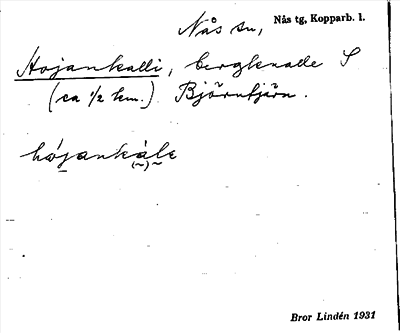 Nås sn, Nås tg, Kopparb. l.
Hojankalli, bergknalle S
(ca 1/2 km.) Björntjärn.
hójankàle
(~)~
Bror Lindén 1931